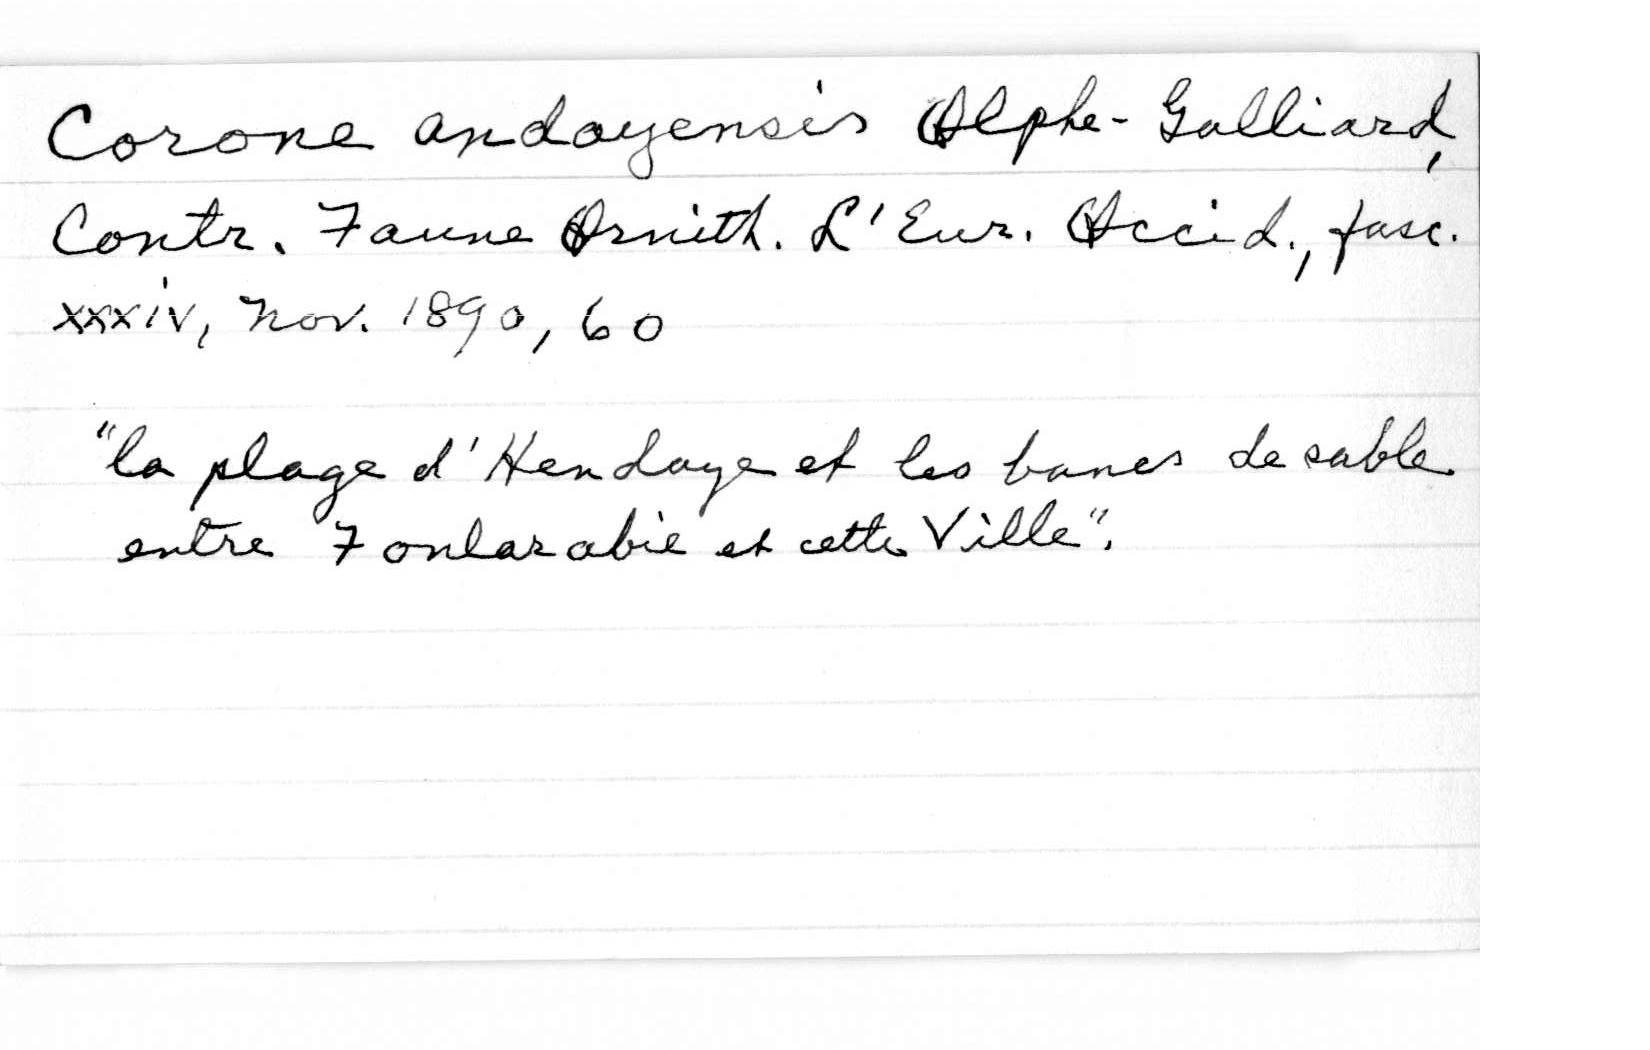 Corone andayensis Olphe-Galliard,
Contr. Faune Ornith. L'Eur. Occid., fasc.
xxxiv, Nov. 1890, 60
"la plage d'Hendaye et les bancs de sable
entre Fonlarabie et cette Ville".